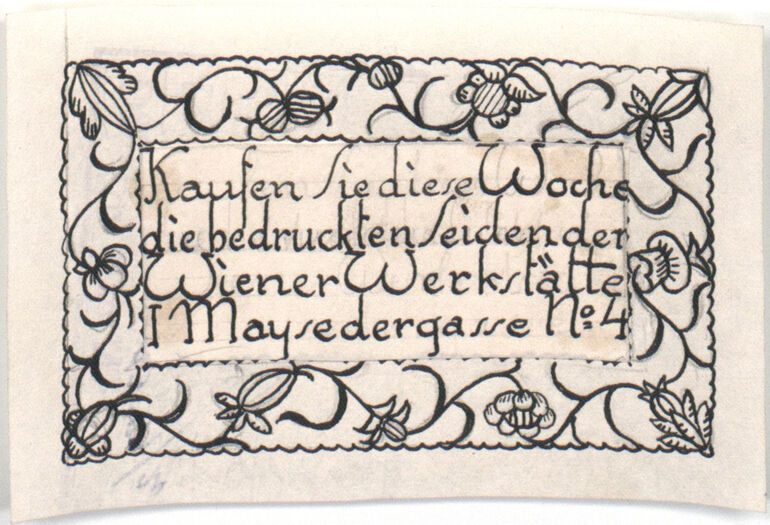 Kaufen Sie diese Woche
die bedruckten Seiden der
Wiener Werkstätte
I Maysedergasse No. 4